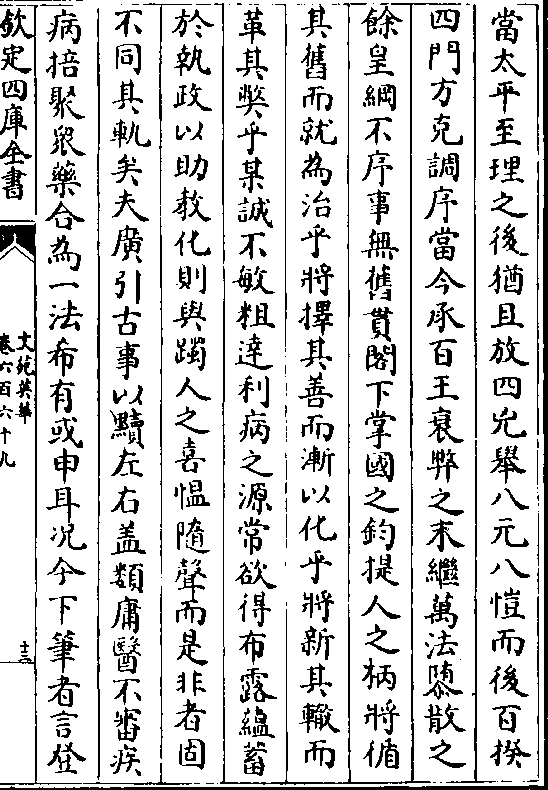 當太平至理之後猶且放四兇舉八元八愷而後百揆
四門方克調序當今承百王衰弊之末繼萬法隳散之
餘皇綱不序事無舊貫閣下掌國之鈞提人之柄將循
其舊而就為治乎將擇其善而漸以化乎將新其轍而
革其弊乎某誠不敏粗達利病之源常欲得布露蘊蓄
於執政以助教化則與躅人之喜愠隨聲而是非者固
不同其軌矣夫廣引古事以黷左右盖類庸醫不審疾
病掊聚衆藥合為一法希有或申耳况今下筆者言登
欽定四庫全書
文苑英華
卷六百六十九
十三